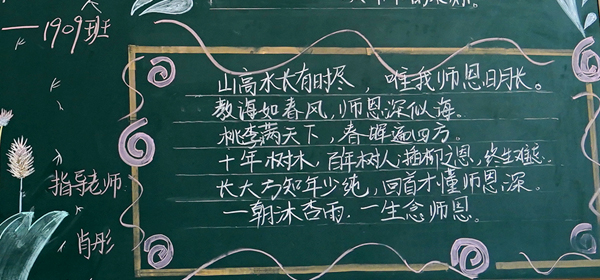 —1909班
山高水长有时尽，唯我师恩日月长。
教海如春风，师恩深似海。
桃李满天下，春晖遍四方。
十年树木，百年树人，插柳之恩，终生难忘。
长大方知年少纯，回首才懂师恩深。
一朝沐杏雨，一生念师恩。
指导老师
肖彤